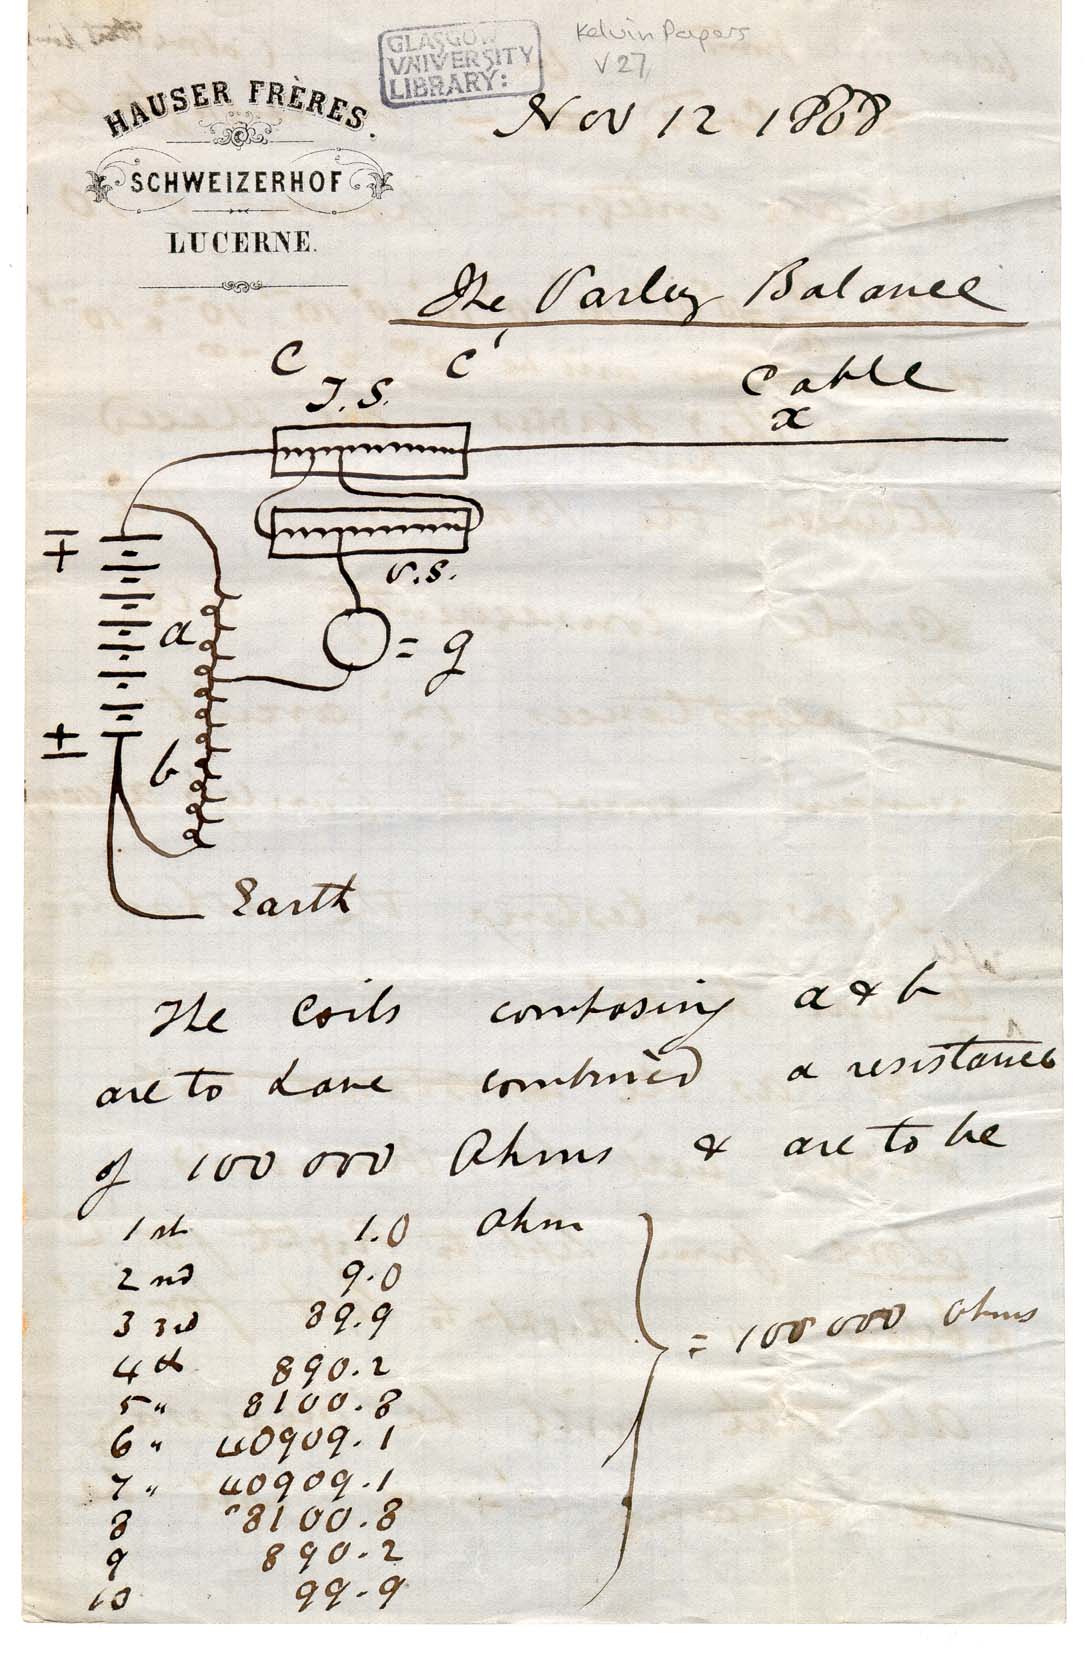 GLASGOW
UNIVERSITY
LIBRARY:
Kelvin Papers
V 27
HAUSER FRÈRES.
SCHWEIZERHOF
LUCERNE.
Nov 12 1868
The Varley Balance
C C'
T.S.
Cable
x
V.S.
a
= g
b
Earth
The Coils composing a & b
are to have combined a resistance
of 100 000 Ohms & are to be
1 st 1.0 Ohm
2 nd 9.0
3 3rd 89.9
4 th 890.2
5 " 8100.8
6 " 40909.1
7 " 40909.1
8 8100.8
9 890.2
10 99.9
= 100 000 Ohms